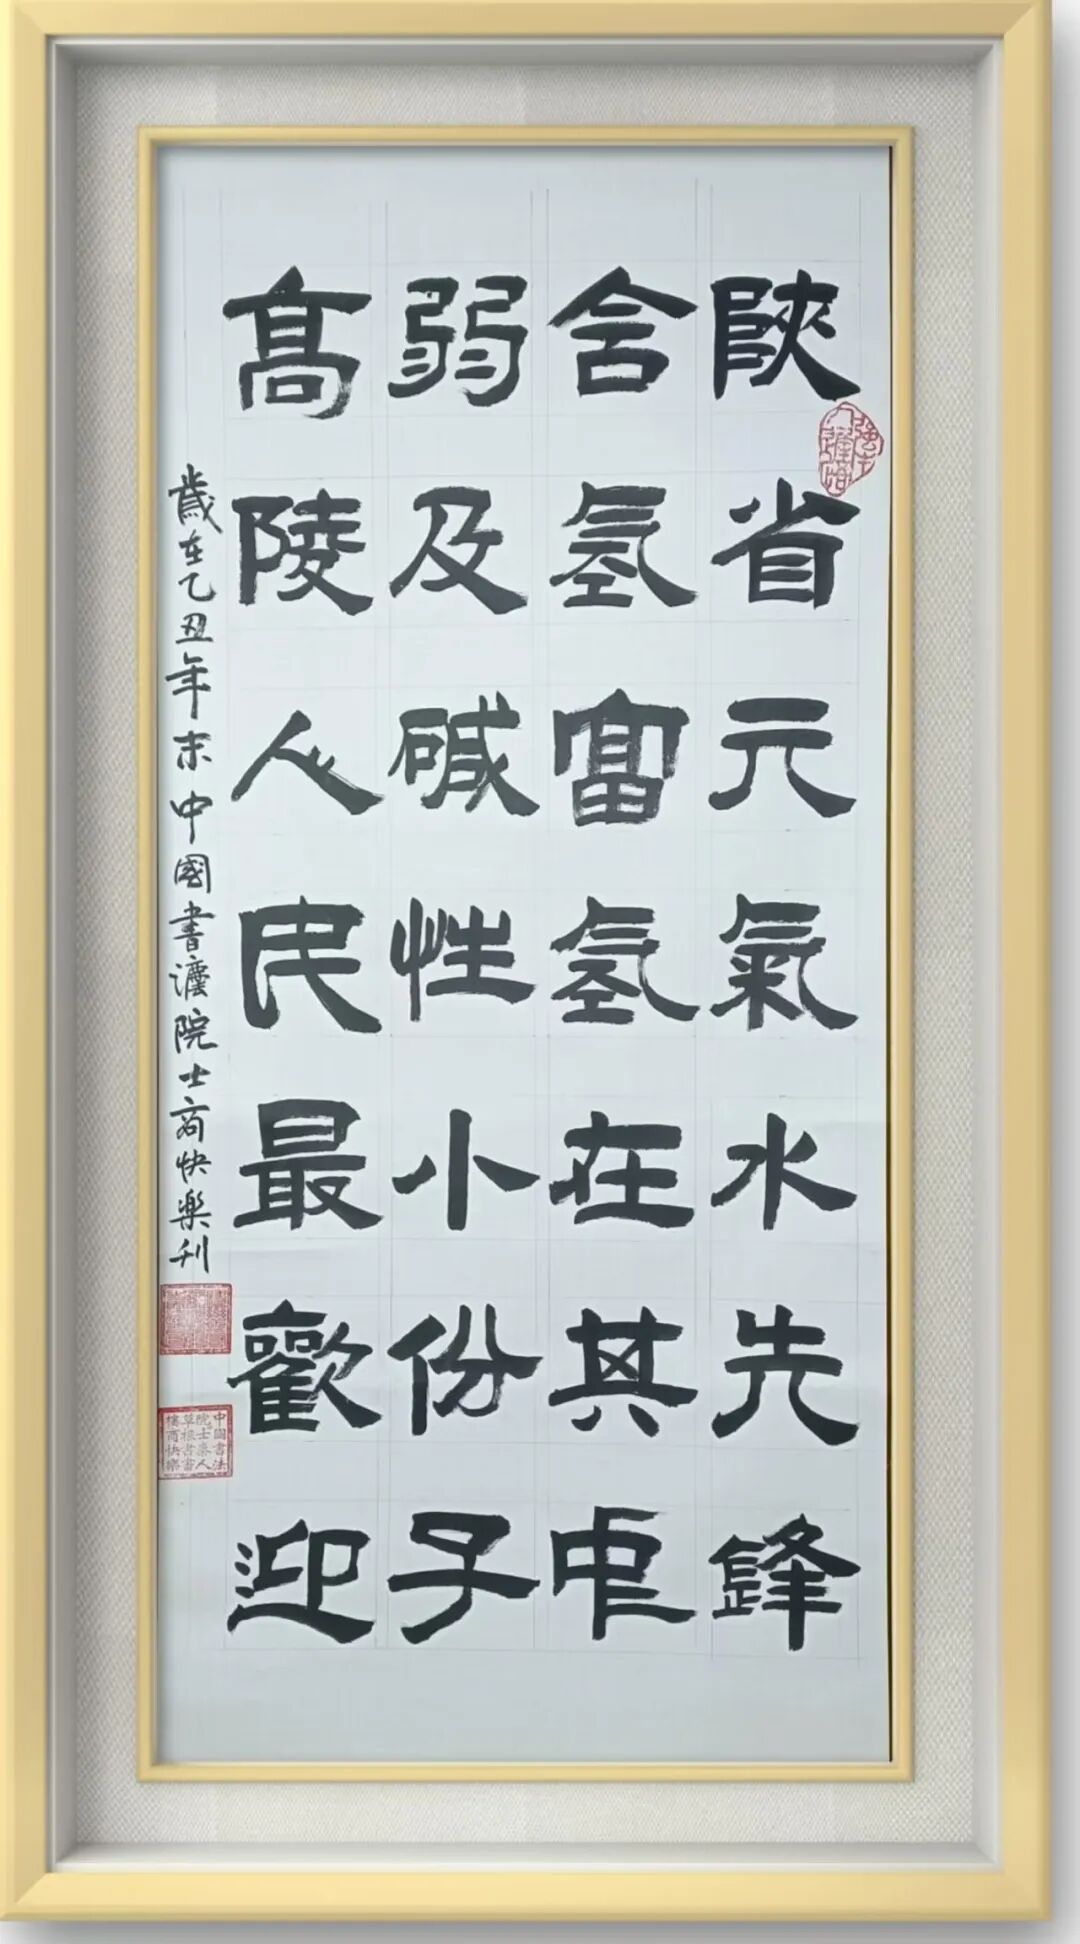 陝省元氣水先鋒
含氢富氢在其中
弱及碱性小份子
髙陵人民最歡迎
歲在乙丑年末中國書灋院士商快樂刊
中國書法
院士秦人
草根書
樓商快樂